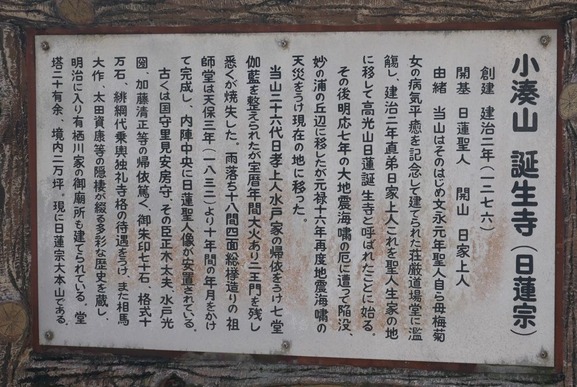 小湊山 誕生寺（日蓮宗）
創建 建治二年（一二七六）
開基 日蓮聖人 開山 日家上人
由緒 当山はそのはじめ文永元年聖人自ら母梅菊
女の病気平癒を記念して建てられた荘厳道場堂に濫
觴し、建治二年直弟日家上人これを聖人生家の地
に移して高光山日蓮誕生寺と呼ばれたことに始る。
その後明応七年の大地震海嘯の厄に遭って陥没
妙の浦の丘辺に移したが元禄十六年再度地震海嘯の
天災をうけ現在の地に移った。
当山二十六代日孝上人水戸家の帰依をうけ七堂
伽藍を整えられたが宝暦年間大火あり二王門を残し
悉くが焼失した。雨落ち十八間四面総欅造りの祖
師堂は天保三年（一八三二）より十年間の年月をかけ
て完成し、内陣中央に日蓮聖人像が安置されている。
古くは国守里見安房守、その臣正木太夫、水戸光
圀、加藤清正等の帰依篤く、御朱印七十石、格式十
万石、緋網代乗輿独礼寺格の待遇をうけ、また相馬
大作、太田資康等の隠棲が綴る多彩な歴史を蔵し、
明治に入り有栖川家の御廟所も建てられている。堂
塔二十有余、境内二万坪。現に日蓮宗大本山である。